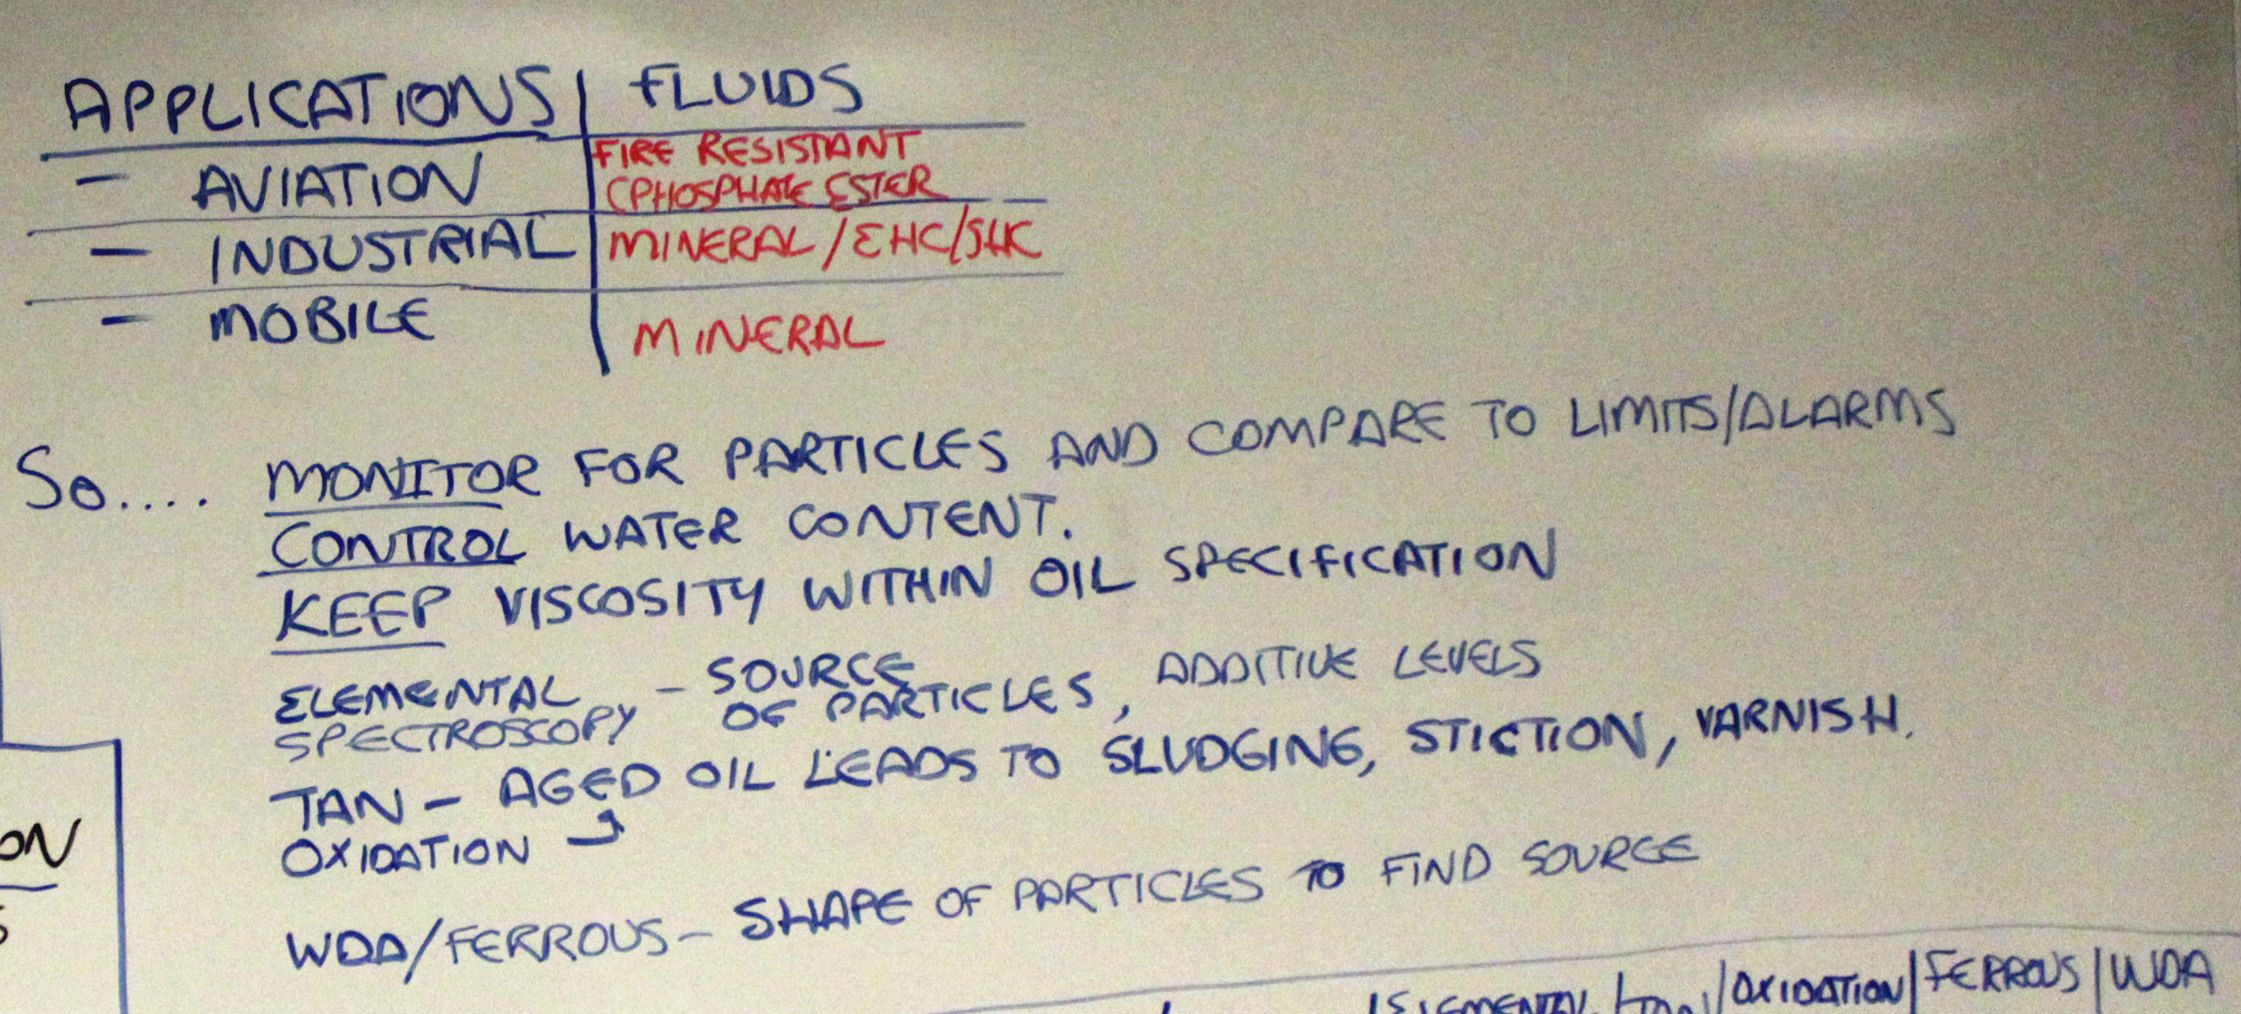 APPLICATIONS | FLUIDS
- AVIATION | FIRE RESISTANT
CPHOSPHATE ESTER
- INDUSTRIAL | MINERAL/EHC/SHC
- MOBILE | MINERAL
So.... MONITOR FOR PARTICLES AND COMPARE TO LIMITS/ALARMS
CONTROL WATER CONTENT.
KEEP VISCOSITY WITHIN OIL SPECIFICATION
ELEMENTAL - SOURCE
SPECTROSCOPY OF PARTICLES, ADDITIVE LEVELS
TAN - AGED OIL LEADS TO SLUDGING, STICTION, VARNISH.
OXIDATION
ON
S
WDA/FERROUS - SHAPE OF PARTICLES TO FIND SOURCE
ELEMENTAL | TAN | OXIDATION | FERROUS | WDA